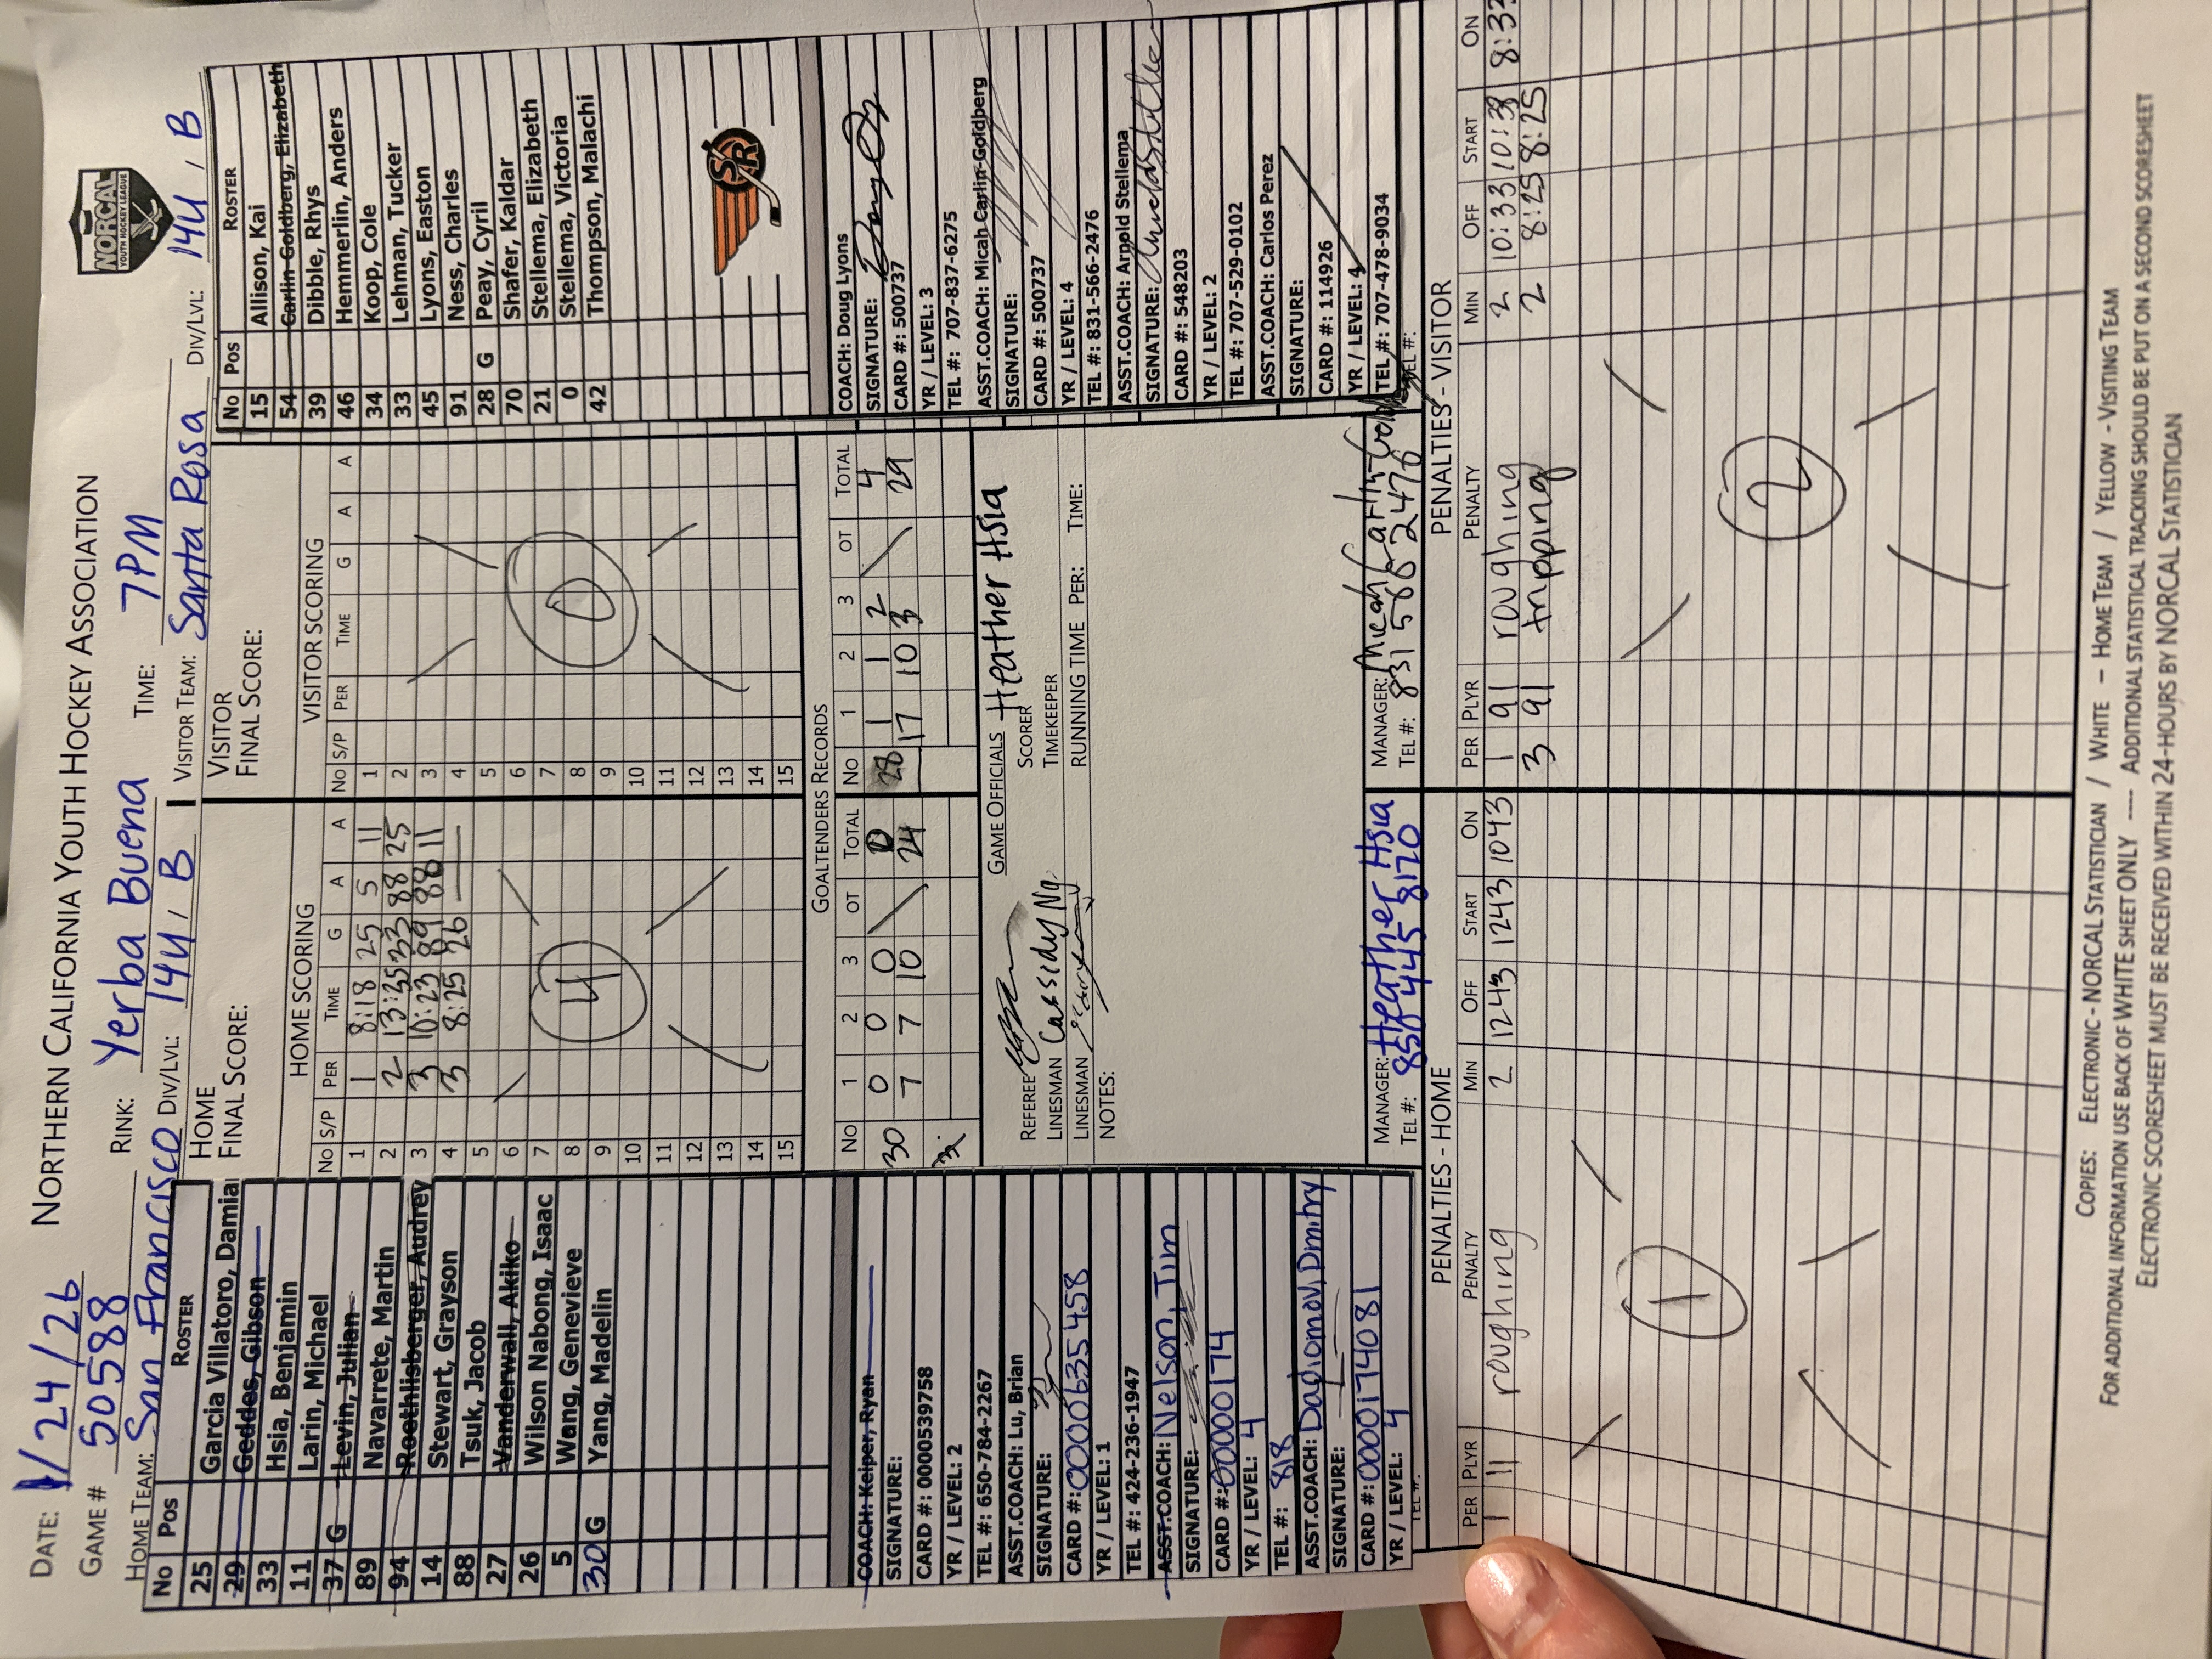 NORTHERN CALIFORNIA YOUTH HOCKEY ASSOCIATION
NORCAL
YOUTH HOCKEY LEAGUE
DATE: 1/24/26
GAME # 50588 RINK: Yerba Buena TIME: 7PM
HOME TEAM: San Francisco DIV/LVL: 14U, B VISITOR TEAM: Santa Rosa DIV/LVL: 14U, B
No Pos ROSTER
25 Garcia Villatoro, Damia
29 Geddes, Gibson
33 Hsia, Benjamin
11 Larin, Michael
37 G Levin, Julian
89 Navarrete, Martin
94 Roethlisberger, Audrey
14 Stewart, Grayson
88 Tsuk, Jacob
27 Vanderwall, Akiko
26 Wilson Nabong, Isaac
5 Wang, Genevieve
30 G Yang, Madelin
HOME
FINAL SCORE:
HOME SCORING
No S/P PER TIME G A A
1 1 8:18 25 5 11
2 2 13:35 33 88 25
3 3 10:23 89 88 11
4 3 8:25 26
5
6
7
8
9
10
11
12
13
14
15
4
VISITOR
FINAL SCORE:
VISITOR SCORING
No S/P PER TIME G A A
1
2
3
4
5
6
7
8
9
10
11
12
13
14
15
0
No Pos ROSTER
15 Allison, Kai
54 Carlin-Goldberg, Elizabeth
39 Dibble, Rhys
46 Hemmerlin, Anders
34 Koop, Cole
33 Lehman, Tucker
45 Lyons, Easton
91 Ness, Charles
28 G Peay, Cyril
70 Shafer, Kaldar
21 Stellema, Elizabeth
0 Stellema, Victoria
42 Thompson, Malachi
SR
GOALTENDERS RECORDS
No 1 2 3 OT TOTAL No 1 2 3 OT TOTAL
30 0 0 0 0 28 1 1 2 4
7 7 10 24 17 10 3 29
COACH: Keiper, Ryan
SIGNATURE:
CARD #: 0000539758
YR / LEVEL: 2
TEL #: 650-784-2267
ASST.COACH: Lu, Brian
SIGNATURE:
CARD #: 0000635458
YR / LEVEL: 1
TEL #: 424-236-1947
ASST.COACH: Nelson, Jim
SIGNATURE:
CARD #: 00000174
YR / LEVEL: 4
TEL #: 818
ASST.COACH: Dadiomov, Dmitry
SIGNATURE:
CARD #: 0000174081
YR / LEVEL: 4
TEL #:
GAME OFFICIALS
REFEREE
LINESMAN Cassidy Ng
LINESMAN
NOTES:
Heather Hsia
SCORER
TIMEKEEPER
RUNNING TIME PER: TIME:
MANAGER: Heather Hsia
TEL #: 850 445 8170
MANAGER: Micah Carlin-Gold
TEL #: 831 566 2476
COACH: Doug Lyons
SIGNATURE:
CARD #: 500737
YR / LEVEL: 3
TEL #: 707-837-6275
ASST.COACH: Micah Carlin-Goldberg
SIGNATURE:
CARD #: 500737
YR / LEVEL: 4
TEL #: 831-566-2476
ASST.COACH: Arnold Stellema
SIGNATURE:
CARD #: 548203
YR / LEVEL: 2
TEL #: 707-529-0102
ASST.COACH: Carlos Perez
SIGNATURE:
CARD #: 114926
YR / LEVEL: 4
TEL #: 707-478-9034
TEL #:
PENALTIES - HOME
PER PLYR PENALTY MIN OFF START ON
1 11 roughing 2 1243 1243 1043
1
PENALTIES - VISITOR
PER PLYR PENALTY MIN OFF START ON
1 91 roughing 2 10:33 10:33 8:33
3 91 tripping 2 8:25 8:25
2
COPIES: ELECTRONIC - NORCAL STATISTICIAN / WHITE - HOME TEAM / YELLOW - VISITING TEAM
FOR ADDITIONAL INFORMATION USE BACK OF WHITE SHEET ONLY ---- ADDITIONAL STATISTICAL TRACKING SHOULD BE PUT ON A SECOND SCORESHEET
ELECTRONIC SCORESHEET MUST BE RECEIVED WITHIN 24-HOURS BY NORCAL STATISTICIAN